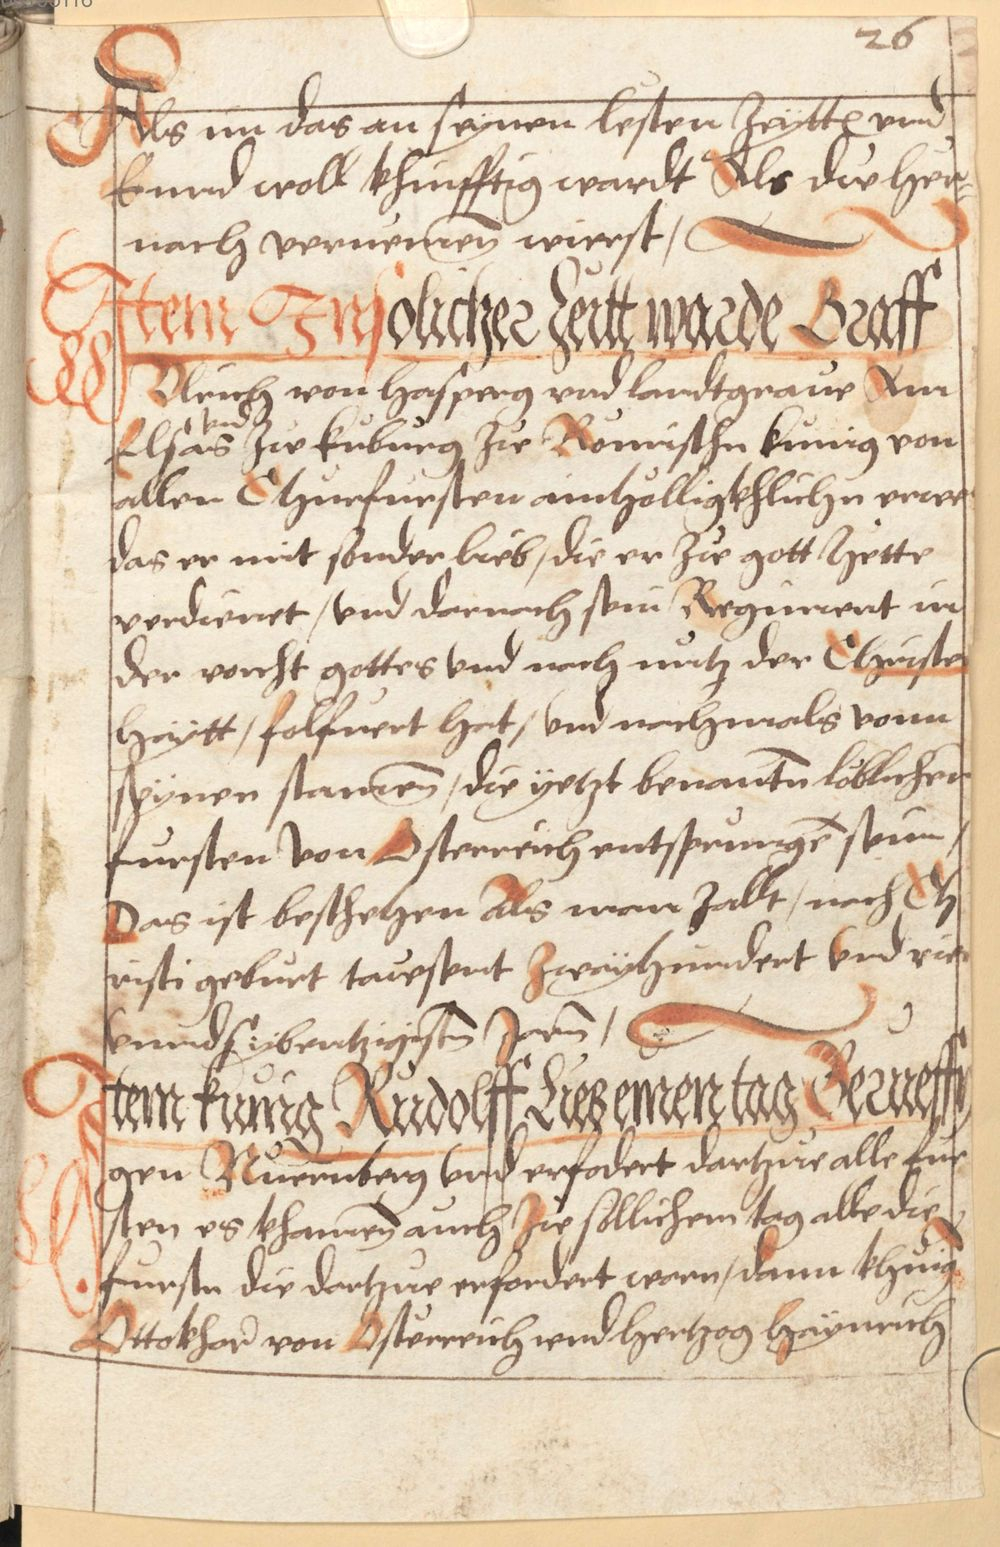 26
Als im das an seynen lesten Zeytten vnd
kumd woll khunfftig wardt Als du her-
nach vernemen wierst /
Item In solicher Zeitt warde Graff
Vlrich von Hasperg vnd landtgraue Am
Elsas vnd Zu kuburg Zu Romischn kunig von
allen Churfursten ainhölligkhlichn erwe
das er mit sonder lieb / die er Zu gott hette
verdienet / vnd darnach sein Regiment in
der vorcht gottes vnd nach nutz der Christen
haytt / folfuert hat / vnd nachmals vonn
seynen stamen / die yetzt benantn löblichen
fursten von Osterreich entsprungē sein /
Das ist beschehen Als man Zallt / nach Ch
risti geburt tausent Zwayhundert vnd vier
vnnd sybentzigistn Jarn /
Item kunig Rudolff Ließ einen tag Berueffn
gen Nuernberg vnd erfodert dartzue alle fur
sten es khamen auch Zu sollichem tag alle die
furstn die dartzue erfordert warn / dann khunig
Ottokhar von Osterreich vnd hertzog Haynrich